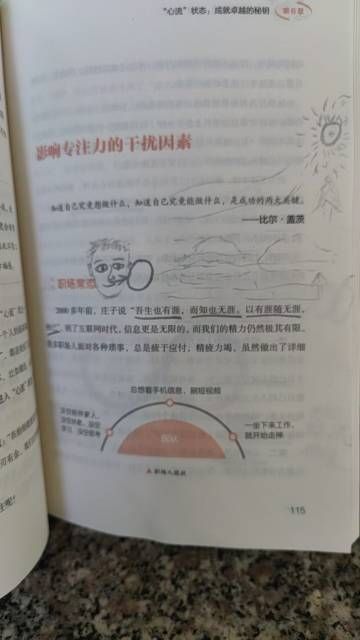 “心流”状态：成就卓越的秘钥
第6章
影响专注力的干扰因素
知道自己究竟想做什么，知道自己究竟能做什么，是成功的两大关键。
——比尔·盖茨
职场常态
2000多年前，庄子说“吾生也有涯，而知也无涯，以有涯随无涯，
到了互联网时代，信息更是无限的，而我们的精力仍然极其有限。
很多职场人面对各种琐事，总是疲于应付，精疲力竭，虽然做出了详细
总想看手机信息、刷短视频
一坐下来工作，
就开始走神
职场人现状
115